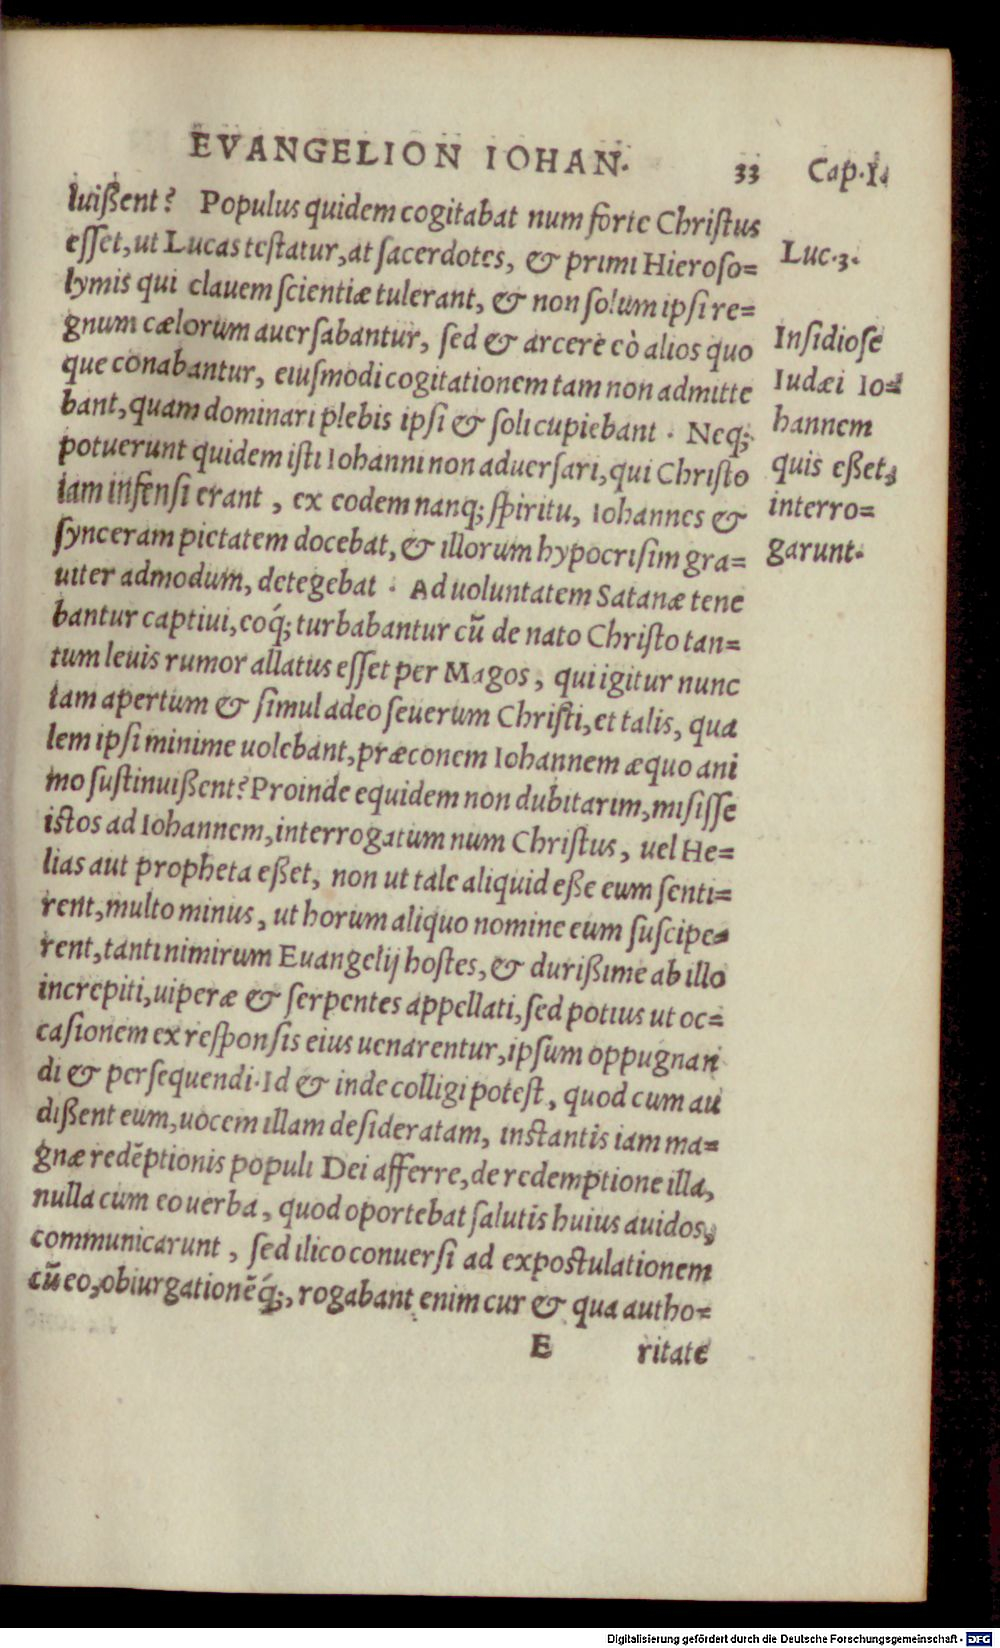 EVANGELION IOHAN. 33 Cap.I.
luißent? Populus quidem cogitabat num forte Christus
esset, ut Lucas testatur, at sacerdotes, & primi Hieroso=
lymis qui clauem scientiæ tulerant, & non solum ipsi re=
gnum cælorum auersabantur, sed & arcere eò alios quo
que conabantur, eiusmodi cogitationem tam non admitte
bant, quam dominari plebis ipsi & soli cupiebant. Neq;
potuerunt quidem isti Iohanni non aduersari, qui Christo
iam infensi erant, ex eodem nanq; spiritu, Iohannes &
synceram pietatem docebat, & illorum hypocrisim gra=
uiter admodum, detegebat. Ad uoluntatem Satanæ tene
bantur captiui, eoq́; turbabantur cũ de nato Christo tan=
tum leuis rumor allatus esset per Magos, qui igitur nunc
tam apertum & simul adeo seuerum Christi, et talis, qua
lem ipsi minime uolebant, præconem Iohannem æquo ani
mo sustinuißent? Proinde equidem non dubitarim, misisse
istos ad Iohannem, interrogatum num Christus, uel He=
lias aut propheta eßet, non ut tale aliquid eße eum senti=
rent, multo minus, ut horum aliquo nomine eum suscipe=
rent, tanti nimirum Euangelij hostes, & durißime ab illo
increpiti, uiperæ & serpentes appellati, sed potius ut oc=
casionem ex responsis eius uenarentur, ipsum oppugnan
di & persequendi. Id & inde colligi potest, quod cum au
dißent eum, uocem illam desideratam, instantis iam ma=
gnæ redẽptionis populi Dei afferre, de redemptione illa,
nulla cum eo uerba, quod oportebat salutis huius auidos,
communicarunt, sed ilico conuersi ad expostulationem
cũ eo, obiurgationẽq́;, rogabant enim cur & qua autho=
E ritate
Luc.3.
Insidiose
Iudæi Io=
hannem
quis eßet,
interro=
garunt.
Digitalisierung gefördert durch die Deutsche Forschungsgemeinschaft - DFG